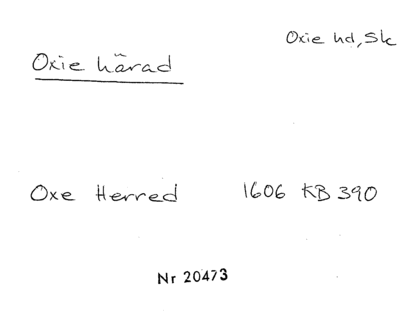 Oxie hd, Sk
Oxie härad
Oxe Herred 1606 KB 390
Nr 20473